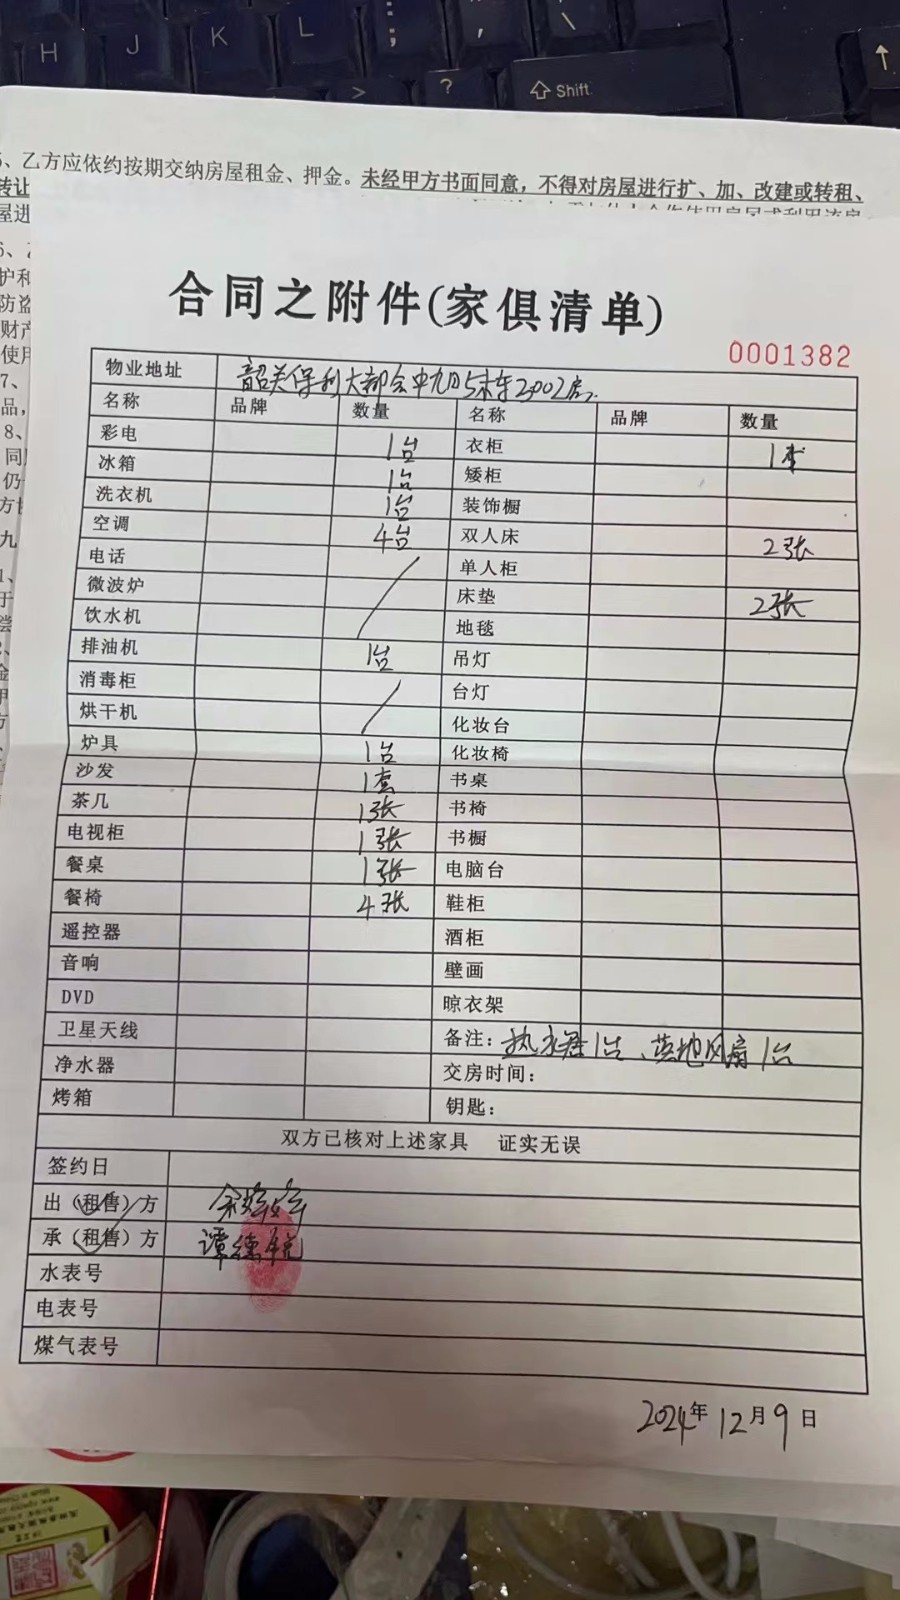 H J K L : ; " ' | \
> ? ⇧ Shift ↑
、乙方应依约按期交纳房屋租金、押金。未经甲方书面同意，不得对房屋进行扩、加、改建或转租、
转让
屋进
护和
防盗
财产
使用
7、
品，
8、
同
仍
方
九
合同之附件(家俱清单)
0001382
物业地址 韶关保利大都会 5栋 2002房
名称 品牌 数量 名称 品牌 数量
彩电 1台 衣柜 1套
冰箱 1台 矮柜
洗衣机 1台 装饰橱
空调 4台 双人床 2张
电话 单人柜
微波炉 床垫 2张
饮水机 地毯
排油机 1台 吊灯
消毒柜 台灯
烘干机 化妆台
炉具 1台 化妆椅
沙发 1套 书桌
茶几 1张 书椅
电视柜 1张 书橱
餐桌 1张 电脑台
餐椅 4张 鞋柜
遥控器 酒柜
音响 壁画
DVD 晾衣架
卫星天线 备注：热水器1台、落地风扇1台
净水器 交房时间：
烤箱 钥匙：
双方已核对上述家具 证实无误
签约日
出（租售）方 余婷婷
承（租售）方 谭德锐
水表号
电表号
煤气表号
2024年12月9日